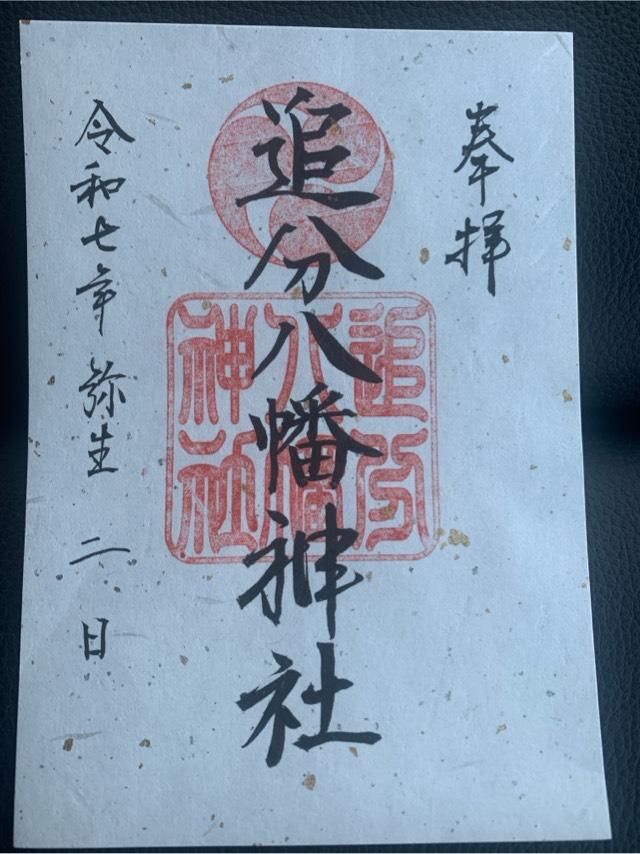 奉拝
追分八幡神社
追分八幡神社
令和七年弥生二日